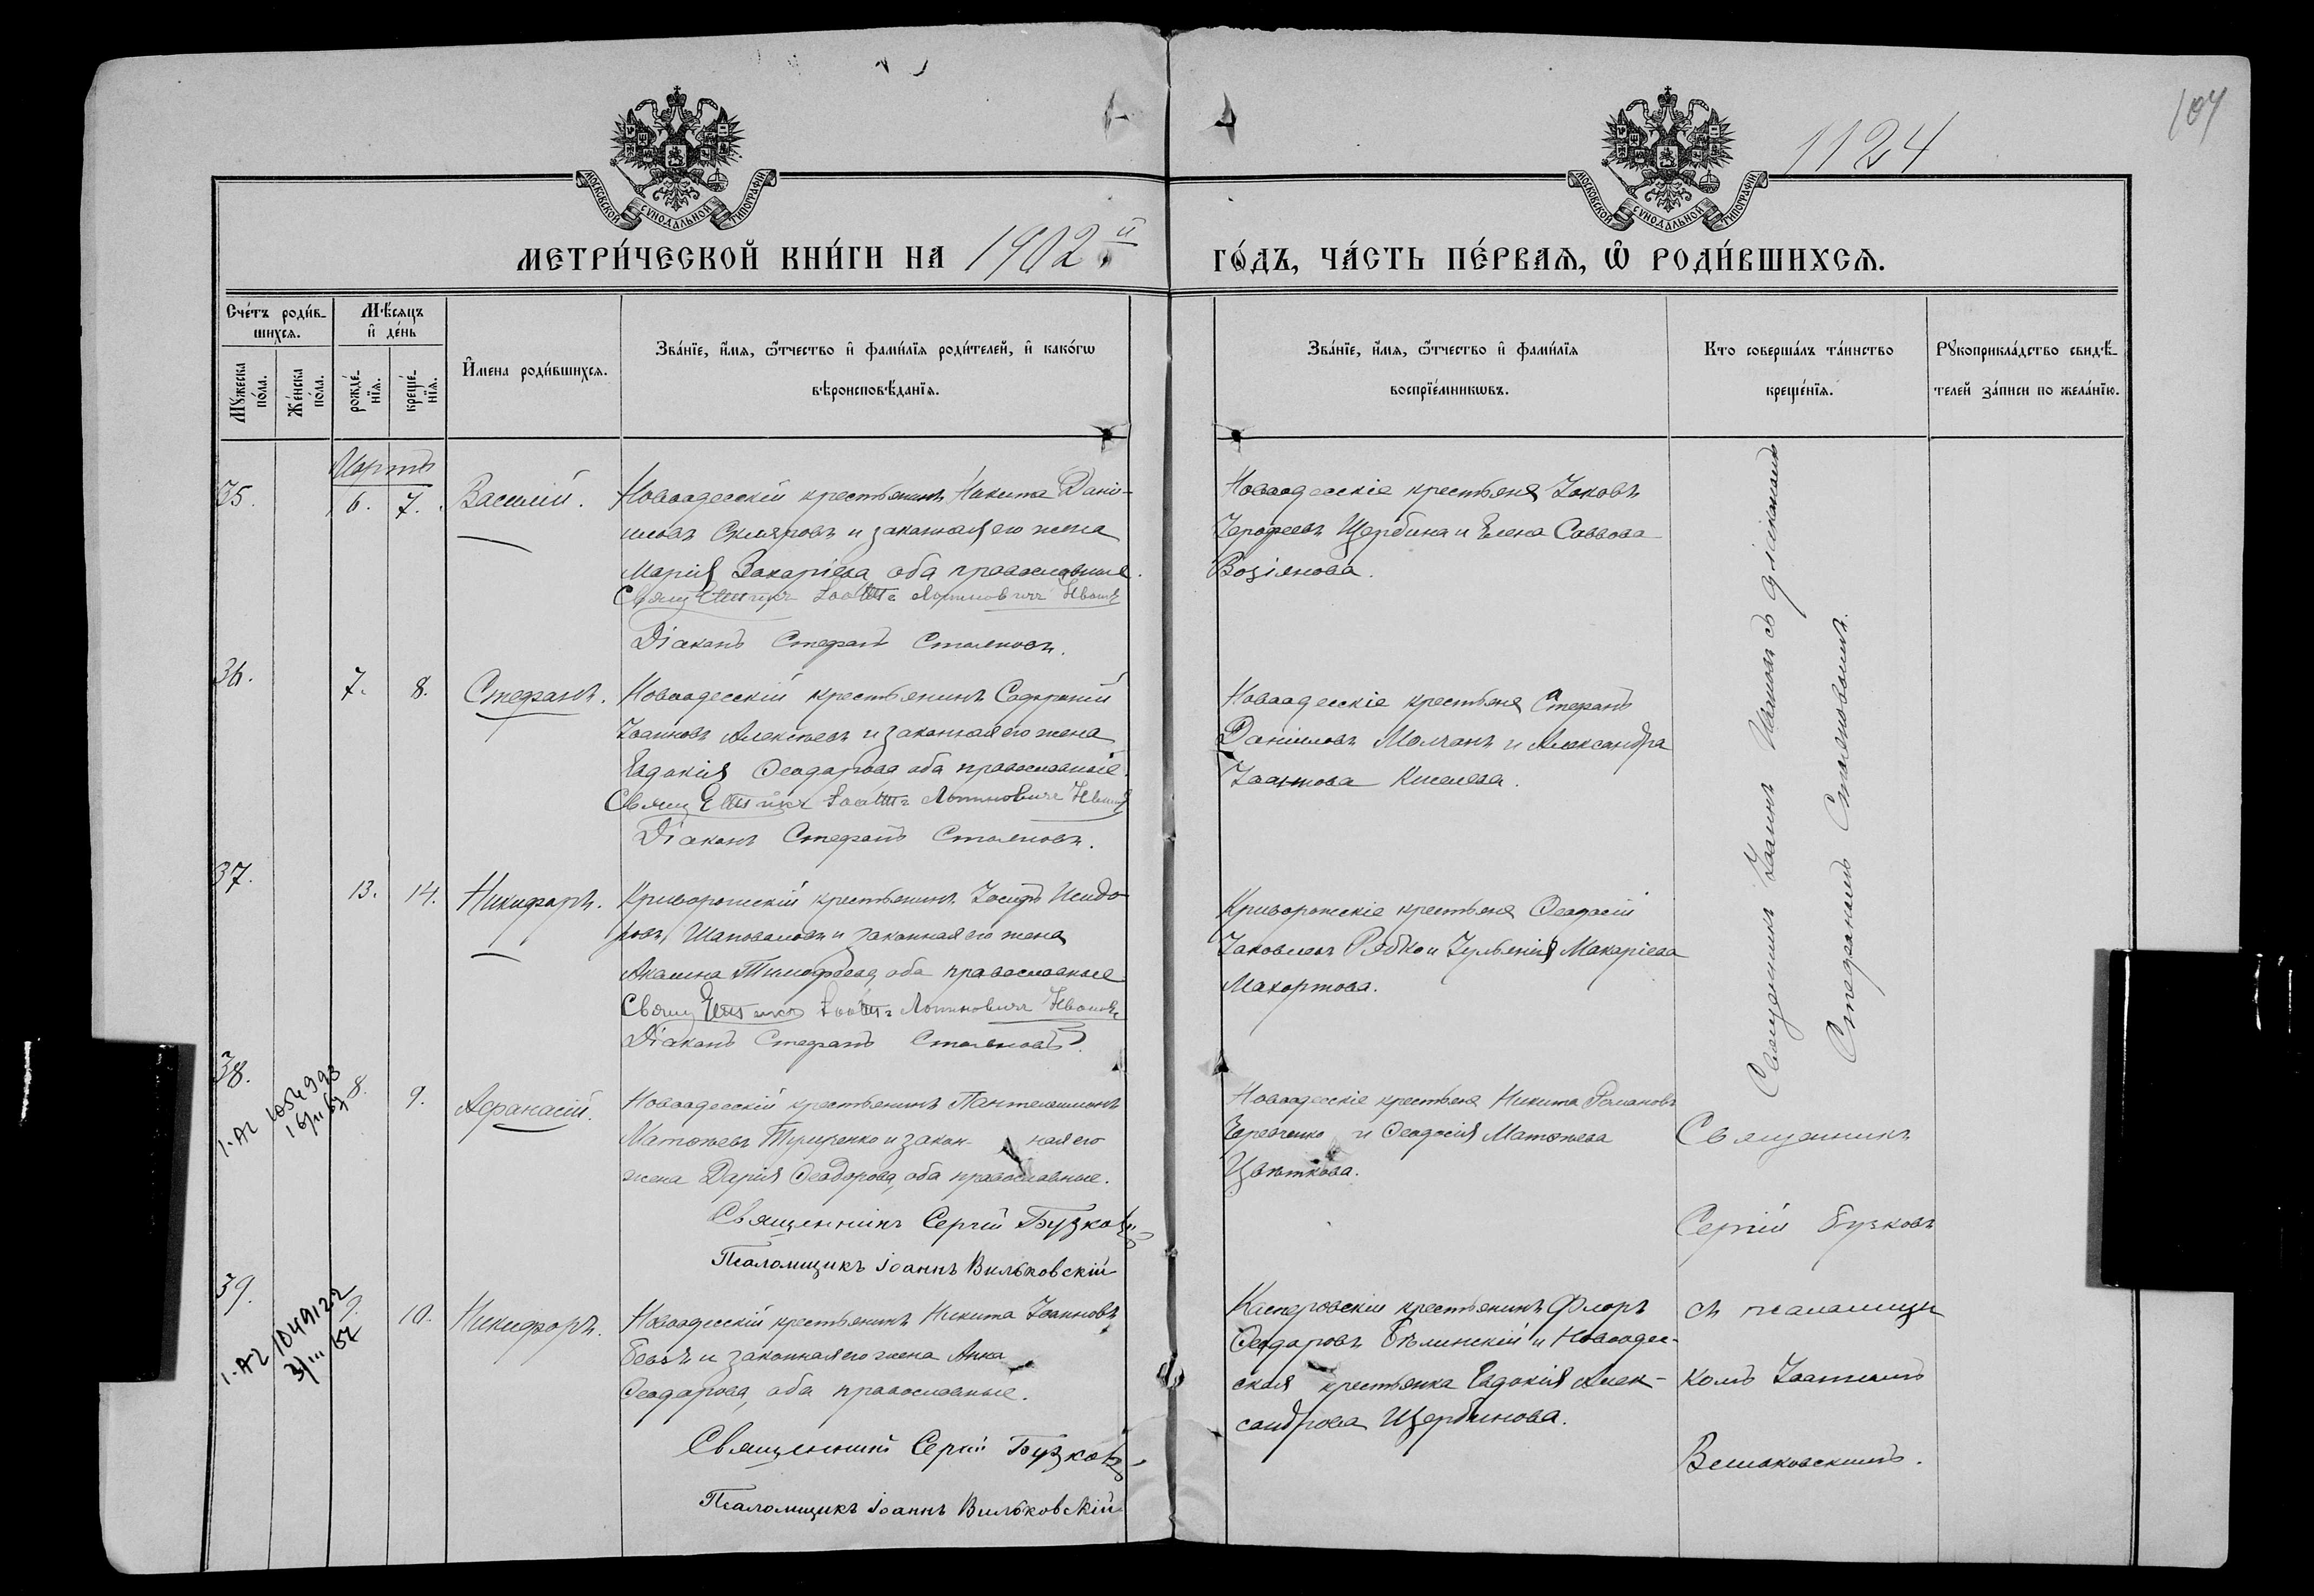 104
1124
МОСКОВСКОЙ СѴНОДАЛЬНОЙ ТИПОГРАФІИ
МОСКОВСКОЙ СѴНОДАЛЬНОЙ ТИПОГРАФІИ
МЕТРИ́ЧЕСКОЙ КНИ́ГИ НА 1902 й
ГО́ДЪ, ЧА́СТЬ ПЕ́РВАѦ, Ѡ РОДИ́ВШИХСѦ.
Сче́тъ роди́в-
шихсѧ.
Мѣ́сѧцъ
и҆ де́нь
Мꙋжеска по́ла.
Же́нска по́ла.
рожде́-
нїѧ.
креще́-
нїѧ.
И҆мена роди́вшихсѧ.
Зва́нїе, и҆́мѧ, ѻ҆́тчество и҆ фами́лїѧ роди́телей, и҆ како́гѡ
вѣроисповѣ́данїѧ.
Зва́нїе, и҆́мѧ, ѻ҆́тчество и҆ фами́лїѧ
воспрїе́мникѡвъ.
Кто соверша́лъ та́инство
креще́нїѧ.
Рꙋкоприкла́дство свидѣ́-
телей за́писи по жела́нїю.
Мартъ
35.
6. 7.
Василій.
Новоодесскій крестьянинъ Никита Дані-
иловъ Скляровъ и законная его жена
Марія Захаріева, оба православные.
Священникъ Іоаннъ Логиновичъ
Діаконъ Стефанъ Стояновъ.
Новоодесскіе крестьяне Іаковъ
Іерофеевъ Щербина и Елена Саввова
Возіянова.
Священникъ Іоаннъ Ивашовъ съ діакономъ
Стефаномъ Стояновымъ.
36.
7. 8.
Стефанъ.
Новоодесскій крестьянинъ Софроній
Іоанновъ Алексѣевъ и законная его жена
Евдокія Ѳеодорова, оба православные.
Священникъ Іоаннъ Логиновичъ
Діаконъ Стефанъ Стояновъ.
Новоодесскіе крестьяне Стефанъ
Даніиловъ Молчанъ и Александра
Іоаннова Киселева.
37.
13. 14.
Никифоръ.
Криворожскій крестьянинъ Іосифъ Исидо-
ровъ Шаповаловъ и законная его жена
Акилина Тимофеева, оба православные
Священникъ Іоаннъ Логиновичъ
Діаконъ Стефанъ Стояновъ.
Криворожскіе крестьяне Ѳеодосій
Іаковлевъ Рябко и Іуліанія Макаріева
Махортова.
38.
8. 9.
I-А2 1054998
Аѳанасій.
Новоодесскій крестьянинъ Пантелеимонъ
Матѳеевъ и закон- ная его
жена Дарія Ѳеодорова, оба православные.
Священникъ Сергій Бузковъ
Псаломщикъ Іоаннъ Вильковскій
Новоодесскіе крестьяне Никита Романовъ
и Ѳеодосія Матѳеева
Цвѣткова.
Священникъ
Сергій Бузковъ
39.
9. 10.
I-А2 1049122
Никифоръ.
Новоодесскій крестьянинъ Никита Іоанновъ
и законная его жена Анна
Ѳеодорова, оба православные.
Священникъ Сергій Бузковъ
Псаломщикъ Іоаннъ Вильковскій
Касперовскій крестьянинъ Флоръ
Ѳеодоровъ Бѣлинскій и Новоодес-
ская крестьянка Евдокія Алек-
сандрова Щербинова.
съ псаломщи
комъ Іоанномъ
Вильковскимъ.